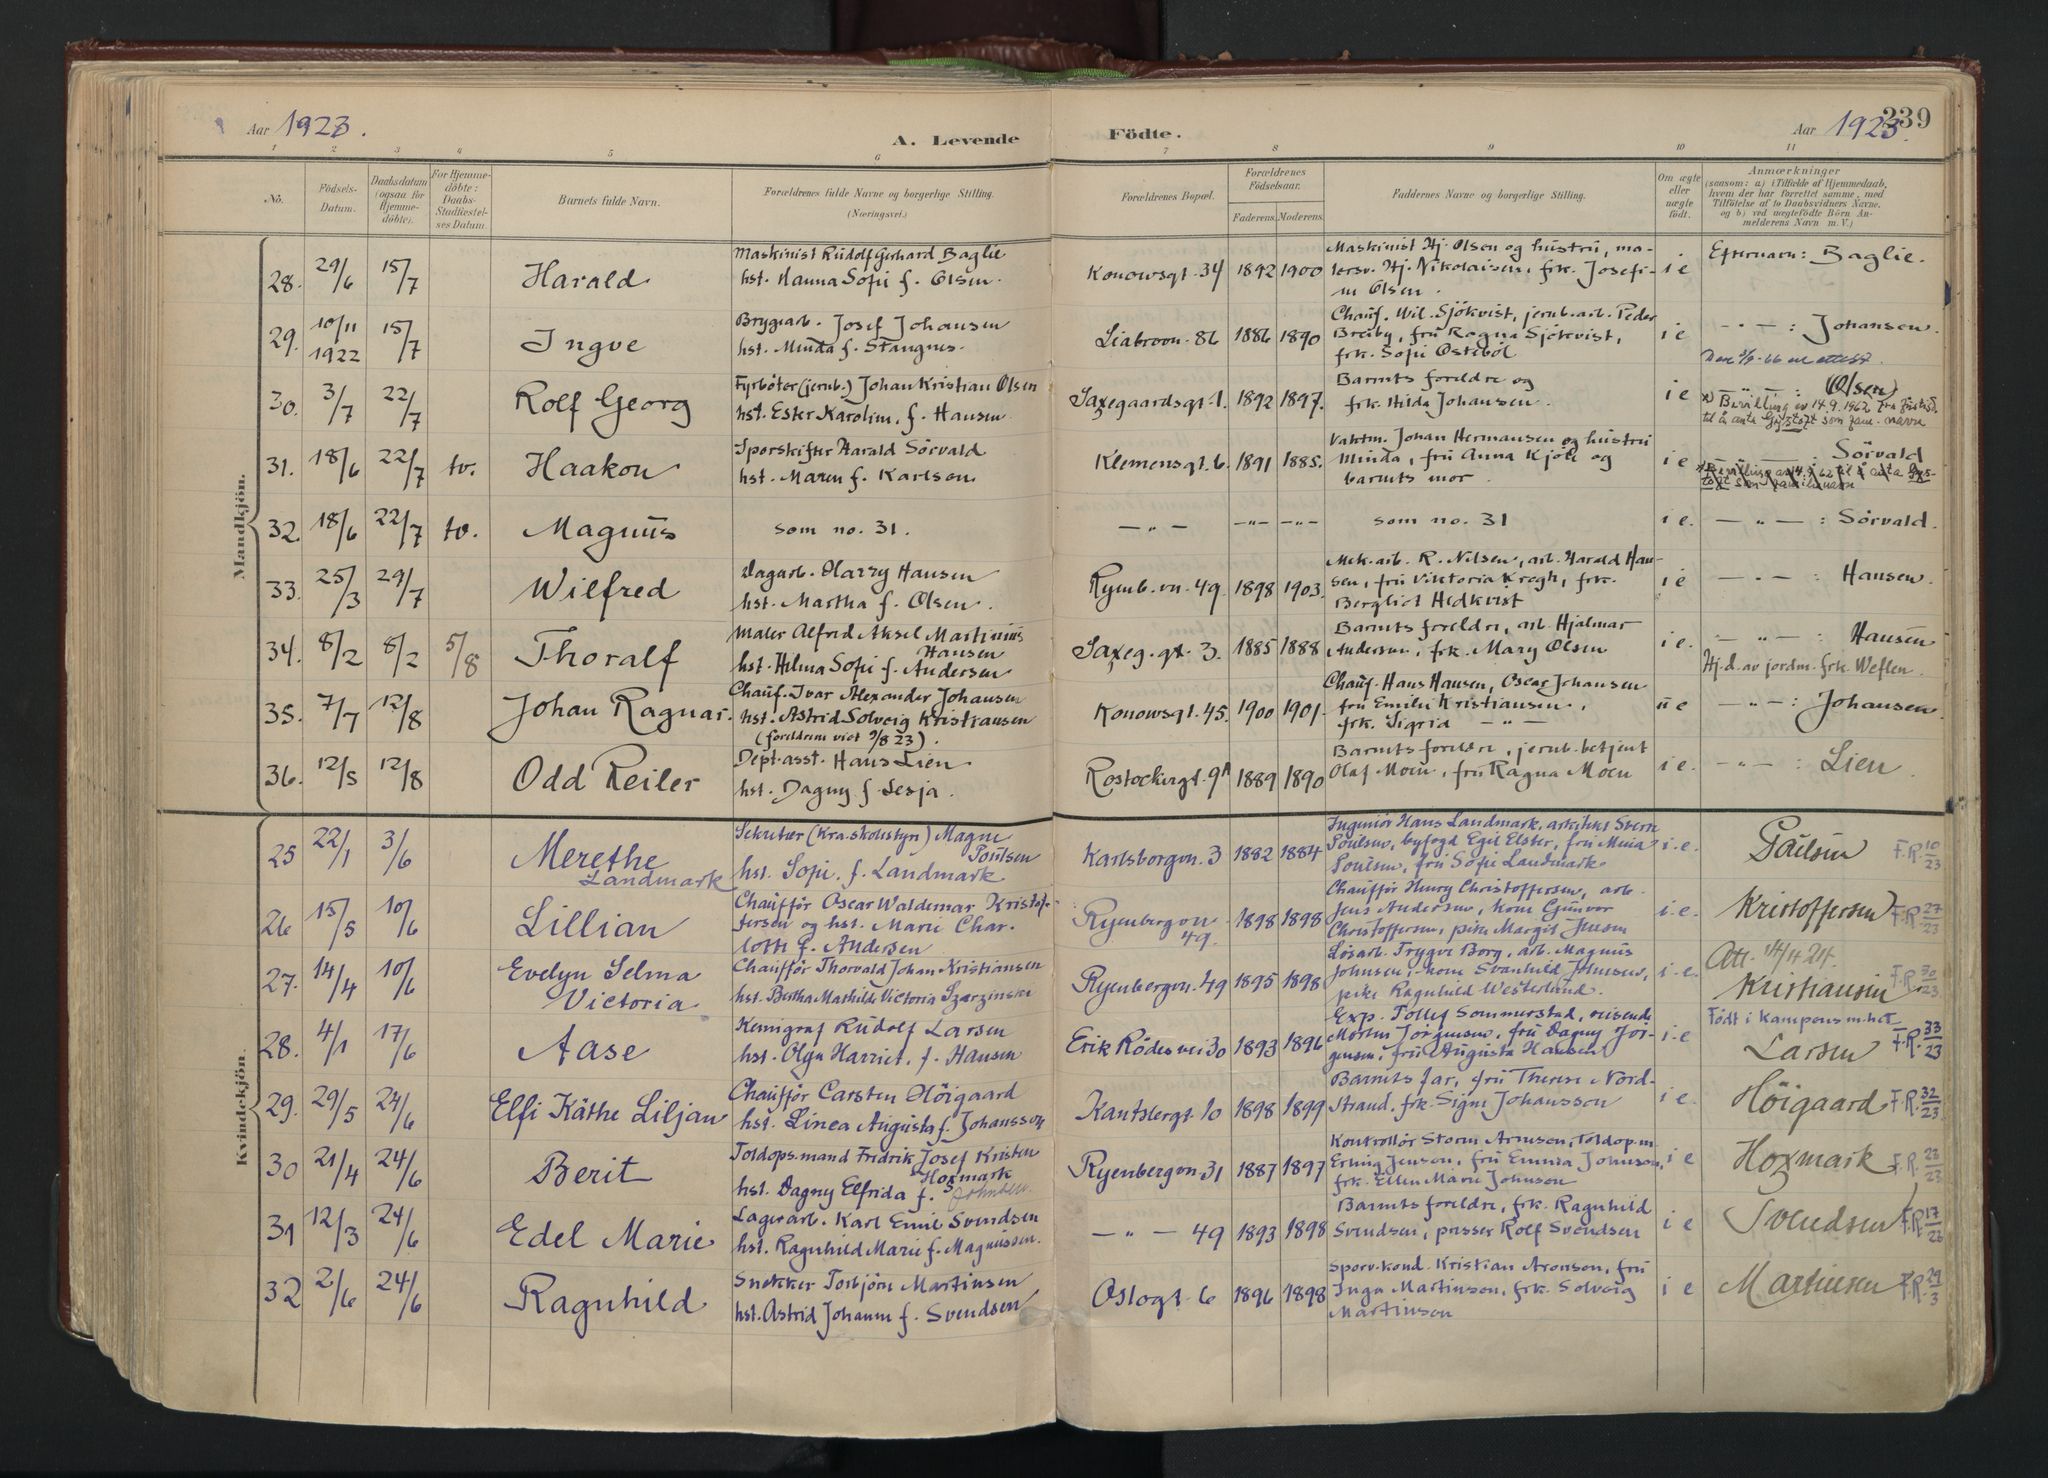 Aar 1923.
A. Levende
Födte.
Aar 1923.
239
1 2 3 4 5 6 7 8 9 10 11
No.
Födsels-
Datum.
Daabsdatum
(ogsaa for
Hjemme-
döbte).
For Hjemme-
döbte:
Daabs-
Stadfæstel-
ses Datum.
Barnets fulde Navn.
Forældrenes fulde Navne og borgerlige Stilling.
(Næringsvei.)
Forældrenes Bopæl.
Forældrenes
Födselsaar.
Faderens. Moderens.
Faddernes Navne og borgerlige Stilling.
Om ægte
eller
uægte
födt.
Anmærkninger
(saasom: a) i Tilfælde af Hjemmedaab,
hvem der har forrettet samme, med
Tilföielse af to Daabsvidners Navne,
og b) ved uægtefödte Börn An-
melderens Navn m. V.)
Mandkjön.
28. 29/6 15/7 Harald
Maskinist Rudolf Gerhard Baglie
hst. Hanna Sofie f. Olsen.
Konowsgt. 34 1892 1900
Maskinist Hj. Olsen og hustru, ma-
tersv. Hj. Nikolaisen, frk. Josefi-
ne Olsen.
i e
Efternavn: Baglie.
29. 10/11 1922 15/7 Ingve
Bryggarb. Josef Johansen
hst. Minda f. Stangnes.
Liabrovn. 86 1886 1890
Chauf. Wil. Sjökvist, jernb.arb. Peder
Breiby, fru Ragna Sjökvist,
frk. Sofie Österböl
i e
— " — : Johansen.
30. 3/7 22/7 Rolf Georg
Fyrböter (jernb.) Johan Kristian Olsen
hst. Ester Karoline, f. Hansen
Saxegaardsgt. 1. 1892 1897.
Barnets foreldre og
frk. Hilda Johansen.
i e
— " — : (Olsen)
x) Bevilling av 14.9.1962 fra Justisd.
til å anta Gystoft som fam.navn
31. 18/6 22/7 tv. Haakon
Sporskifter Harald Sörvald
hst. Maren f. Karlsen.
Klemensgt. 6. 1891 1885.
Vaktm. Johan Hermansen og hustru
Minda, fru Anna Kjöle og
barnets mor.
i e
Sörvald
32. 18/6 22/7 tv. Magnus
som no. 31.
— " — — " — — " —
som no. 31
i e.
— " — : Sörvald.
33. 25/3 29/7 Wilfred
Dagarb. Harry Hansen
hst. Martha f. Olsen.
Ryenb. vn. 49. 1898 1903.
Mek.arb. R. Nilsen, arb. Harald Han-
sen, fru Viktoria Kregh, frk.
Bergliot Hedkvist
i e
— " — : Hansen.
34. 8/2 8/2 5/8 Thoralf
Maler Alfred Aksel Martinius
Hansen
hst. Hilma Sofie f. Andersen
Saxeg. gt. 3. 1885 1888
Barnets foreldre, arb. Hjalmar
Andersen, frk. Mary Olsen
i e.
— " — : Hansen
Hj.d. av jordm. frk. Weflen.
35. 7/7 12/8 Johan Ragnar.
Chauf. Ivar Alexander Johansen
hst. Astrid Solveig Kristiansen
(foreldrene viet 9/8 23).
Konowsgt. 45. 1900 1901.
Chauf. Hans Hansen, Oscar Johansen
fru Emilie Kristiansen,
frk. Sigrid — " —
u e
— " — : Johansen
36. 12/5 12/8 Odd Reiler
Dept.asst. Hans Lien
hst. Dagny f. Lesja.
Rostockergt. 9A 1889 1890
Barnets foreldre, jernb.betjent
Olaf Moen, fru Ragna Moen
i e.
— " — : Lien.
Kvindekjön.
25 22/1 3/6 Merethe
Landmark
Sekretær (Kra. skolestyre) Magne
Poulsen
hst. Sofie. f. Landmark
Karlsborgvn. 3 1882 1884
Ingeniör Hans Landmark, arkitekt Sverre
Poulsen, byfogd Egil Elster, fru Mina
Poulsen, fru Sofie Landmark
i. e.
Poulsen F.R. 10/23
26 15/5 10/6 Lillian
Chaufför Oscar Waldemar Kristof-
fersen og hst. Marie Char-
lotte f. Andersen
Ryenbergvn
49. 1898 1898
Chaufför Henry Christoffersen, arb.
Jens Andersen, kone Gunvor
Christoffersen, pike Margit Jensen
i. e.
Kristoffersen F.R. 27/23
27. 14/4 10/6 Evelyn Selma
Victoria
Chaufför Thorvald Johan Kristiansen
hst. Bertha Mathilde Victoria Szarzinski
Ryenbergvn. 49 1895 1898
Lösarb. Trygve Borg, arb. Magnus
Johnsen, kone Svanhild Johnsen,
pike Ragnhild Westerlund.
i. e.
Att. 14/4 24.
Kristiansen F.R. 30/23
28. 4/1 17/6 Aase
Kemigraf Rudolf Larsen
hst. Olga Harriet, f. Hansen
Erik Rödes vei 30 1893 1896
Exp. Tollef Sommerstad, reisende
Morten Jörgensen, fru Dagny Jör-
gensen, fru Augusta Hansen
i. e
Födt i Kampens m.het
Larsen F.R. 33/23
29. 29/5 24/6 Elfi Käthe Liljan
Chaufför Carsten Höigaard
hst. Linea Augusta f. Johansson
Kantslergt. 10 1898 1899
Barnets far, fru Therese Nord-
strand, frk. Signe Johansson
i e.
Höigaard F.R. 32/23
30 21/4 24/6 Berit
Toldops.mand Fredrik Josef Kristen
Hoxmark
hst. Dagny Elfrida f. Johnsen
Ryenbergvn. 31 1887 1897
Kontrollör Storm Arnesen, Toldop.m.
Erling Jenson, fru Emma Johnson,
frk. Ellen Marie Johnson
i e
Hoxmark F.R. 23/23
31 12/3 24/6 Edel Marie
Lagerarb. Karl Emil Svendsen
hst. Ragnhild Marie f. Magnussen.
— " — 49 1893 1898
Barnets foreldre, frk. Ragnhild
Svendsen, presser Rolf Svendsen
i e
Svendsen F.R. 17/23
32 2/6 24/6 Ragnhild
Snekker Torbjörn Martinsen
hst. Astrid Johanne f. Svendsen
Oslogt. 6 1896 1898
Sporv.kond. Kristian Aronson, fru
Inga Martinson, frk. Solveig
Martinson
i e
Martinsen F.R. 29/3